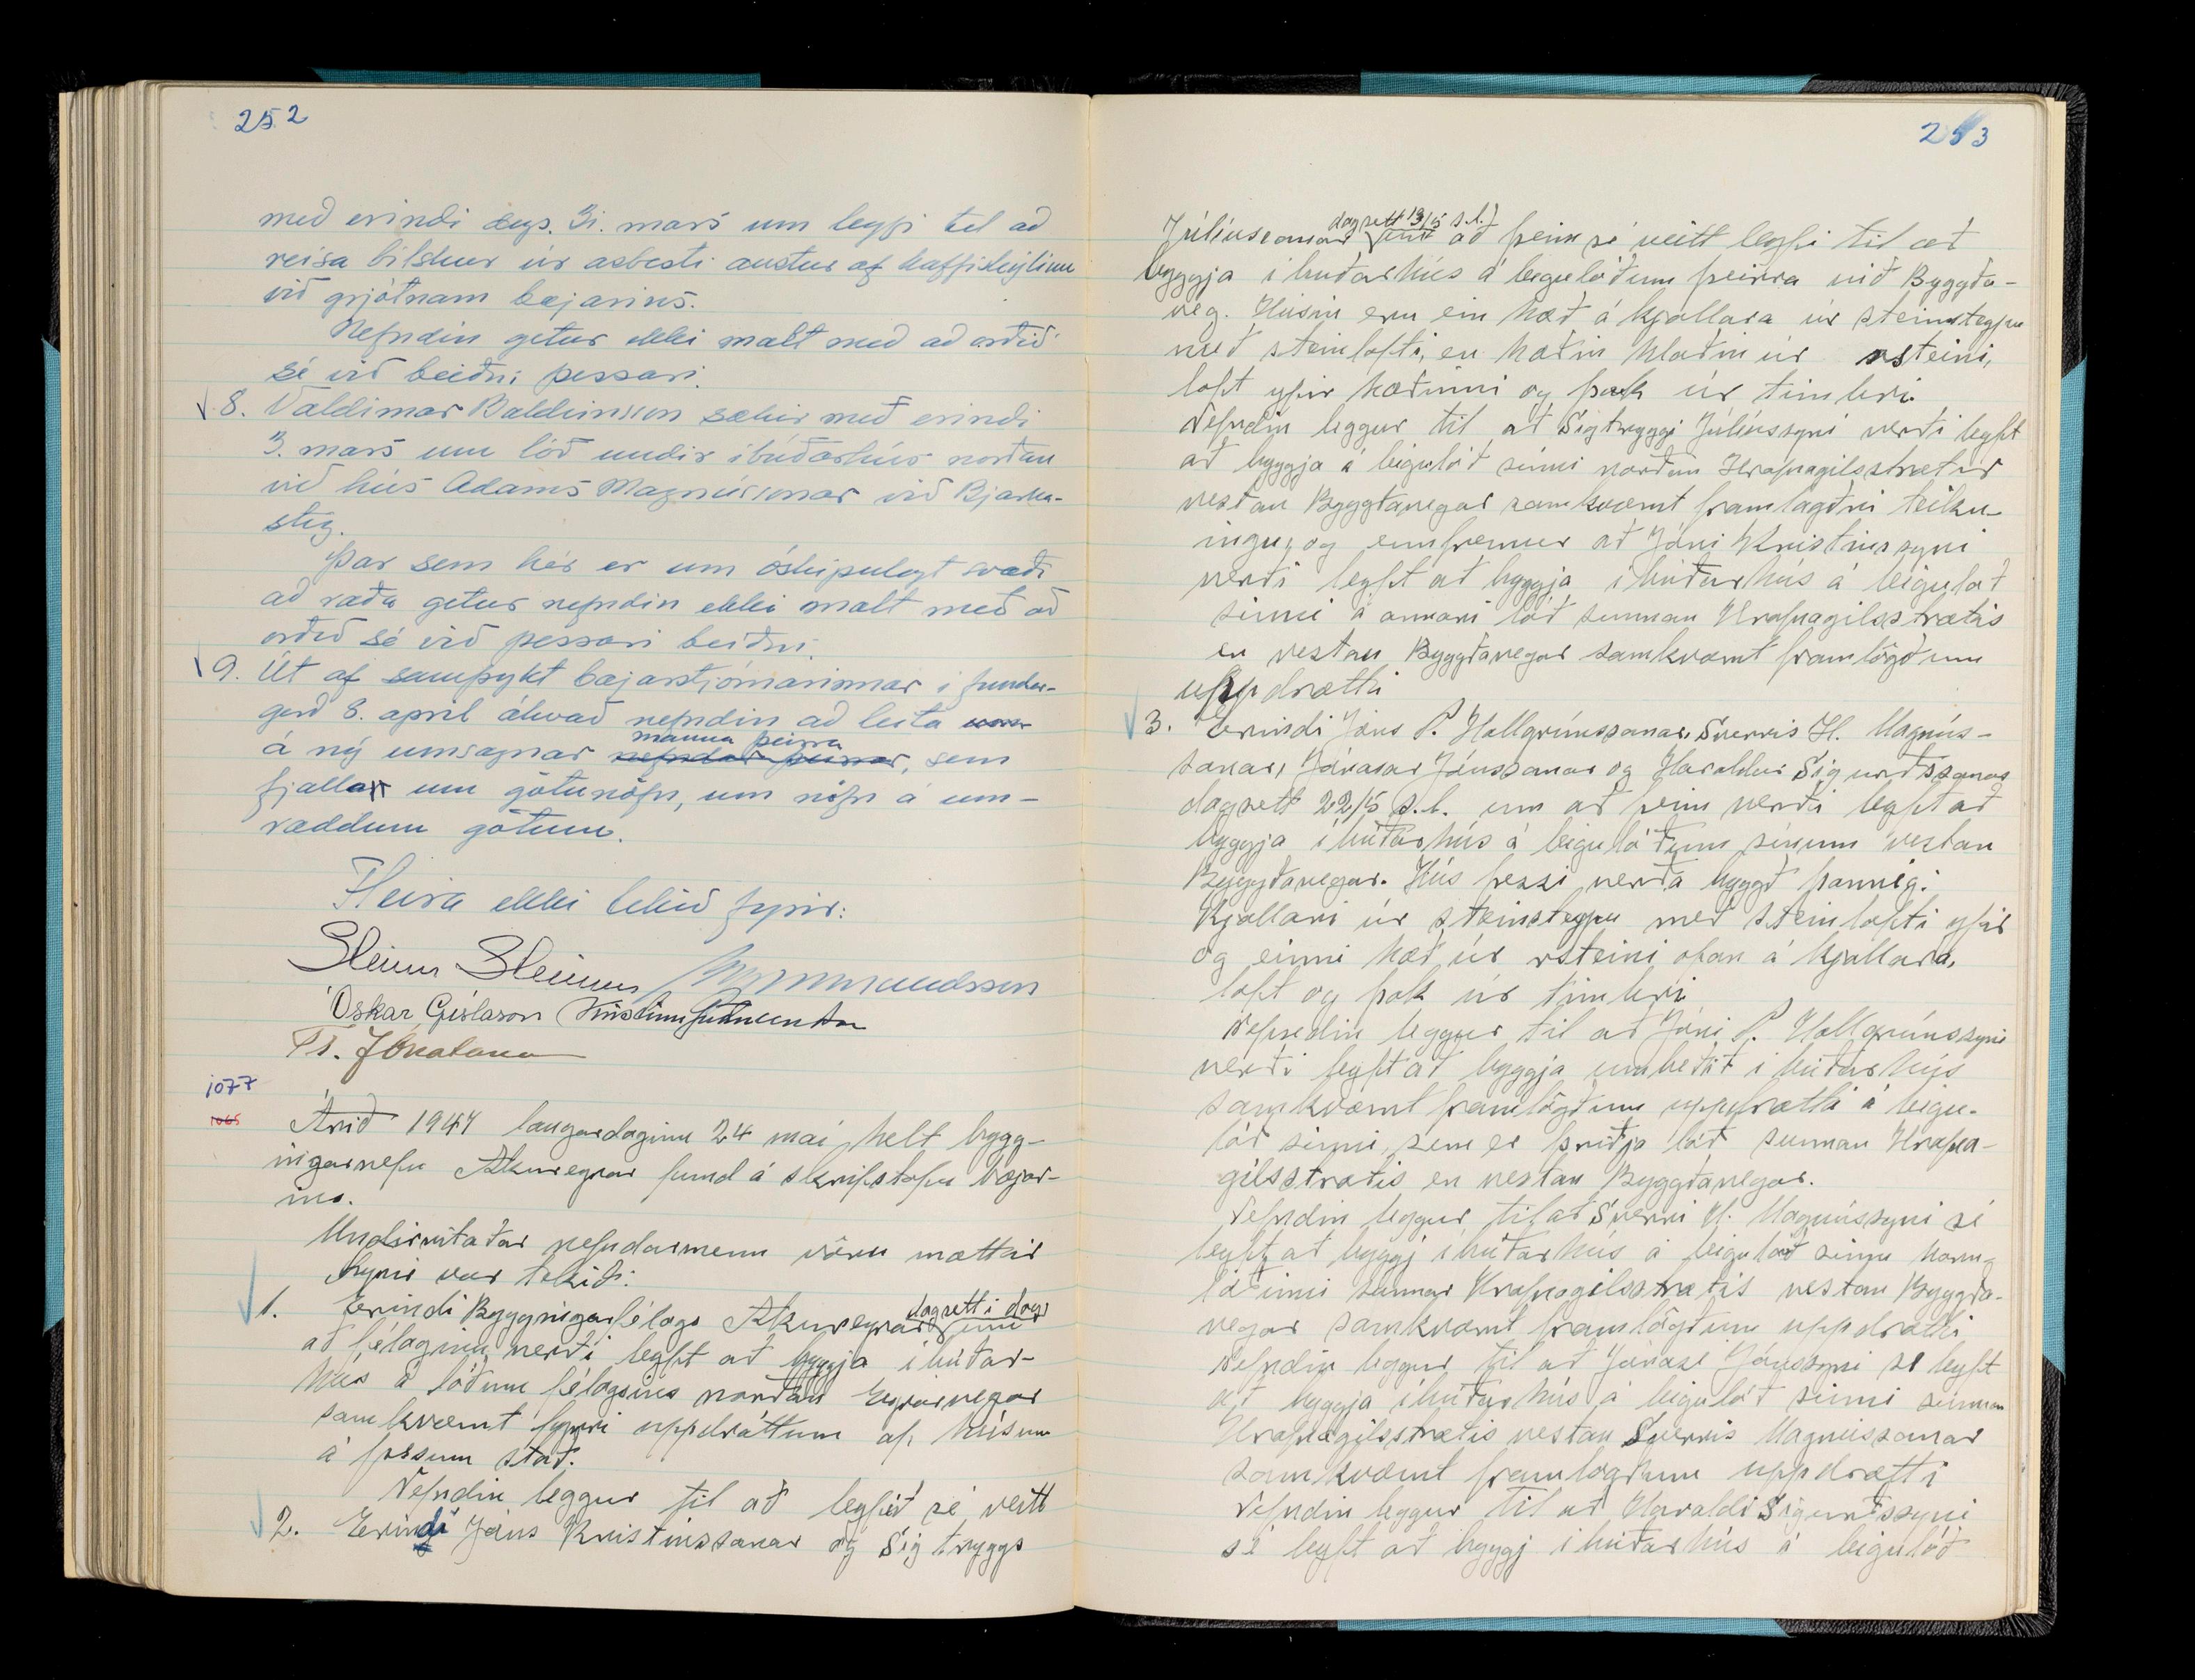 252
með erindi dags. 31. mars um leyfi til að
reisa bílskúr úr asbesti austur af kaffiskýlinu
við grjótnám bæjarins.
Nefndin getur ekki mælt með að orðið
sé við beiðni þessari.
8. Valdimar Baldvinsson sækir með erindi
3. mars um lóð undir íbúðarhús norðan
við hús Adams Magnússonar við Bjarka-
stíg.
Þar sem hér er um óskipulegt svæði
að ræða getur nefndin ekki mælt með að
orðið sé við þessari beiðni.
9. Út af samþykt bæjarstjórnarinnar í fundar-
gerð 8. apríl ákvað nefndin að leita
á ný umsagnar manna þeirra, sem
fjallar um götunöfn, um nöfn á um-
ræddum götum.
Fleira ekki tekið fyrir:
Steinn Steinsen
Óskar Gíslason
Tr. Jónatansson
1077
1065
Árið 1947 laugardaginn 24 maí, helt bygg-
ingarnefn Akureyrar fund á skrifstofu bæjar-
ins.
Undirritaðar nefndarmenn vóru mættir
Fyrir var tekið:
1. Erindi Byggingarfélags Akureyrar dagsett í dag, um
að félaginu verði leyft að byggja íbúðar-
hús á lóðum félagsins norðan Eyrarvegar
samkvæmt fyrri uppdráttum af húsum
á þessum stað.
Nefndin leggur til að leyfið sé veitt
2. Erindi Jóns Kristinssonar og Sigtryggs
253
Júlíussonar dagsett 13/5 s.l. um að þeim sé veitt leyfi til að
byggja íbúðarhús á leigulóðum þeirra við Byggða-
veg. Húsin eru ein hæð á kjallara úr steinsteypu
með steinlofti, en hæðin hlaðin úr rsteini,
loft yfir hæðinni og þak úr timbri.
Nefndin leggur til að Sigtryggi Júlíussyni verði leyft
að byggja á leigulóð sinni norðan Hrafnagilsstrætis
vestan Byggðavegar samkvæmt framlagðri teikn-
ingu, og ennfremur að Jóni Kristinssyni
verði leyft að byggja íbúðarhús á leigulóð
sinni á annari lóð sunnan Hrafnagilsstrætis
en vestan Byggðavegar samkvæmt framlögðum
uppdrætti
3. Erindi Jóns P. Hallgrímssonar, Sverris H. Magnús-
sonar, Jónasar Jónssonar og Haraldur Sigurðssonar
dagsett 22/5 s.l. um að þeim verði leyft að
byggja íbúðarhús á leigulóðum sínum vestan
Byggðavegar. Hús þessi verða byggð þannig:
Kjallari úr steinsteypu með steinlofti yfir
og einni hæð úr rsteini ofan á kjallara,
loft og þak úr timbri
Nefndin leggur til að Jóni P. Hallgrímssyni
verði leyft að byggja umbeðið íbúðarhús
samkvæmt framlögðum uppdrætti á leigu-
lóð sinni, sem er þriðja lóð sunnan Hrafna-
gilsstrætis en vestan Byggðavegar.
Nefndin leggur til að Sverri H. Magnússyni sé
leyft að byggj íbúðarhús á leigulóð sinni horn-
lóðinni sunnar Hrafnagilsstrætis vestan Byggða-
vegar samkvæmt framlögðum uppdrætti
Nefndin leggur til að Jónasi Jónssyni sé leyft
að byggja íbúðarhús á leigulóð sinni sunnan
Hrafnagilsstrætis vestan Sverris Magnússonar
samkvæmt framlögðum uppdrætti
Nefndin leggur til að Haraldi Sigurðssyni
sé leyft að byggj íbúðarhús á leigulóð